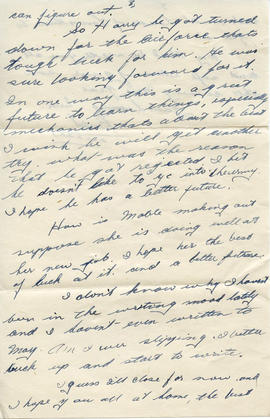 can figure out.
3
So Harry he got turned
down for the Airforce thats
tough luck for him. He was
sure looking forward for it.
In one way this is a great
future to learn things, especially
mechanics thats about the best
I wish he will get another
try. what was the reason
that he got rejected I bet
he doesn't like to go into the army.
I hope he has a better future.
How is Mable making out
suppose she is doing well at
her new job. I hope her the best
of luck at it, and a better future.
I don't know why I haven't
been in the writing mood lately
and I haven't even written to
May. Am I ever slipping. I better
buck up and start to write.
I guess I'll close for now and
I hope you all at home, the best